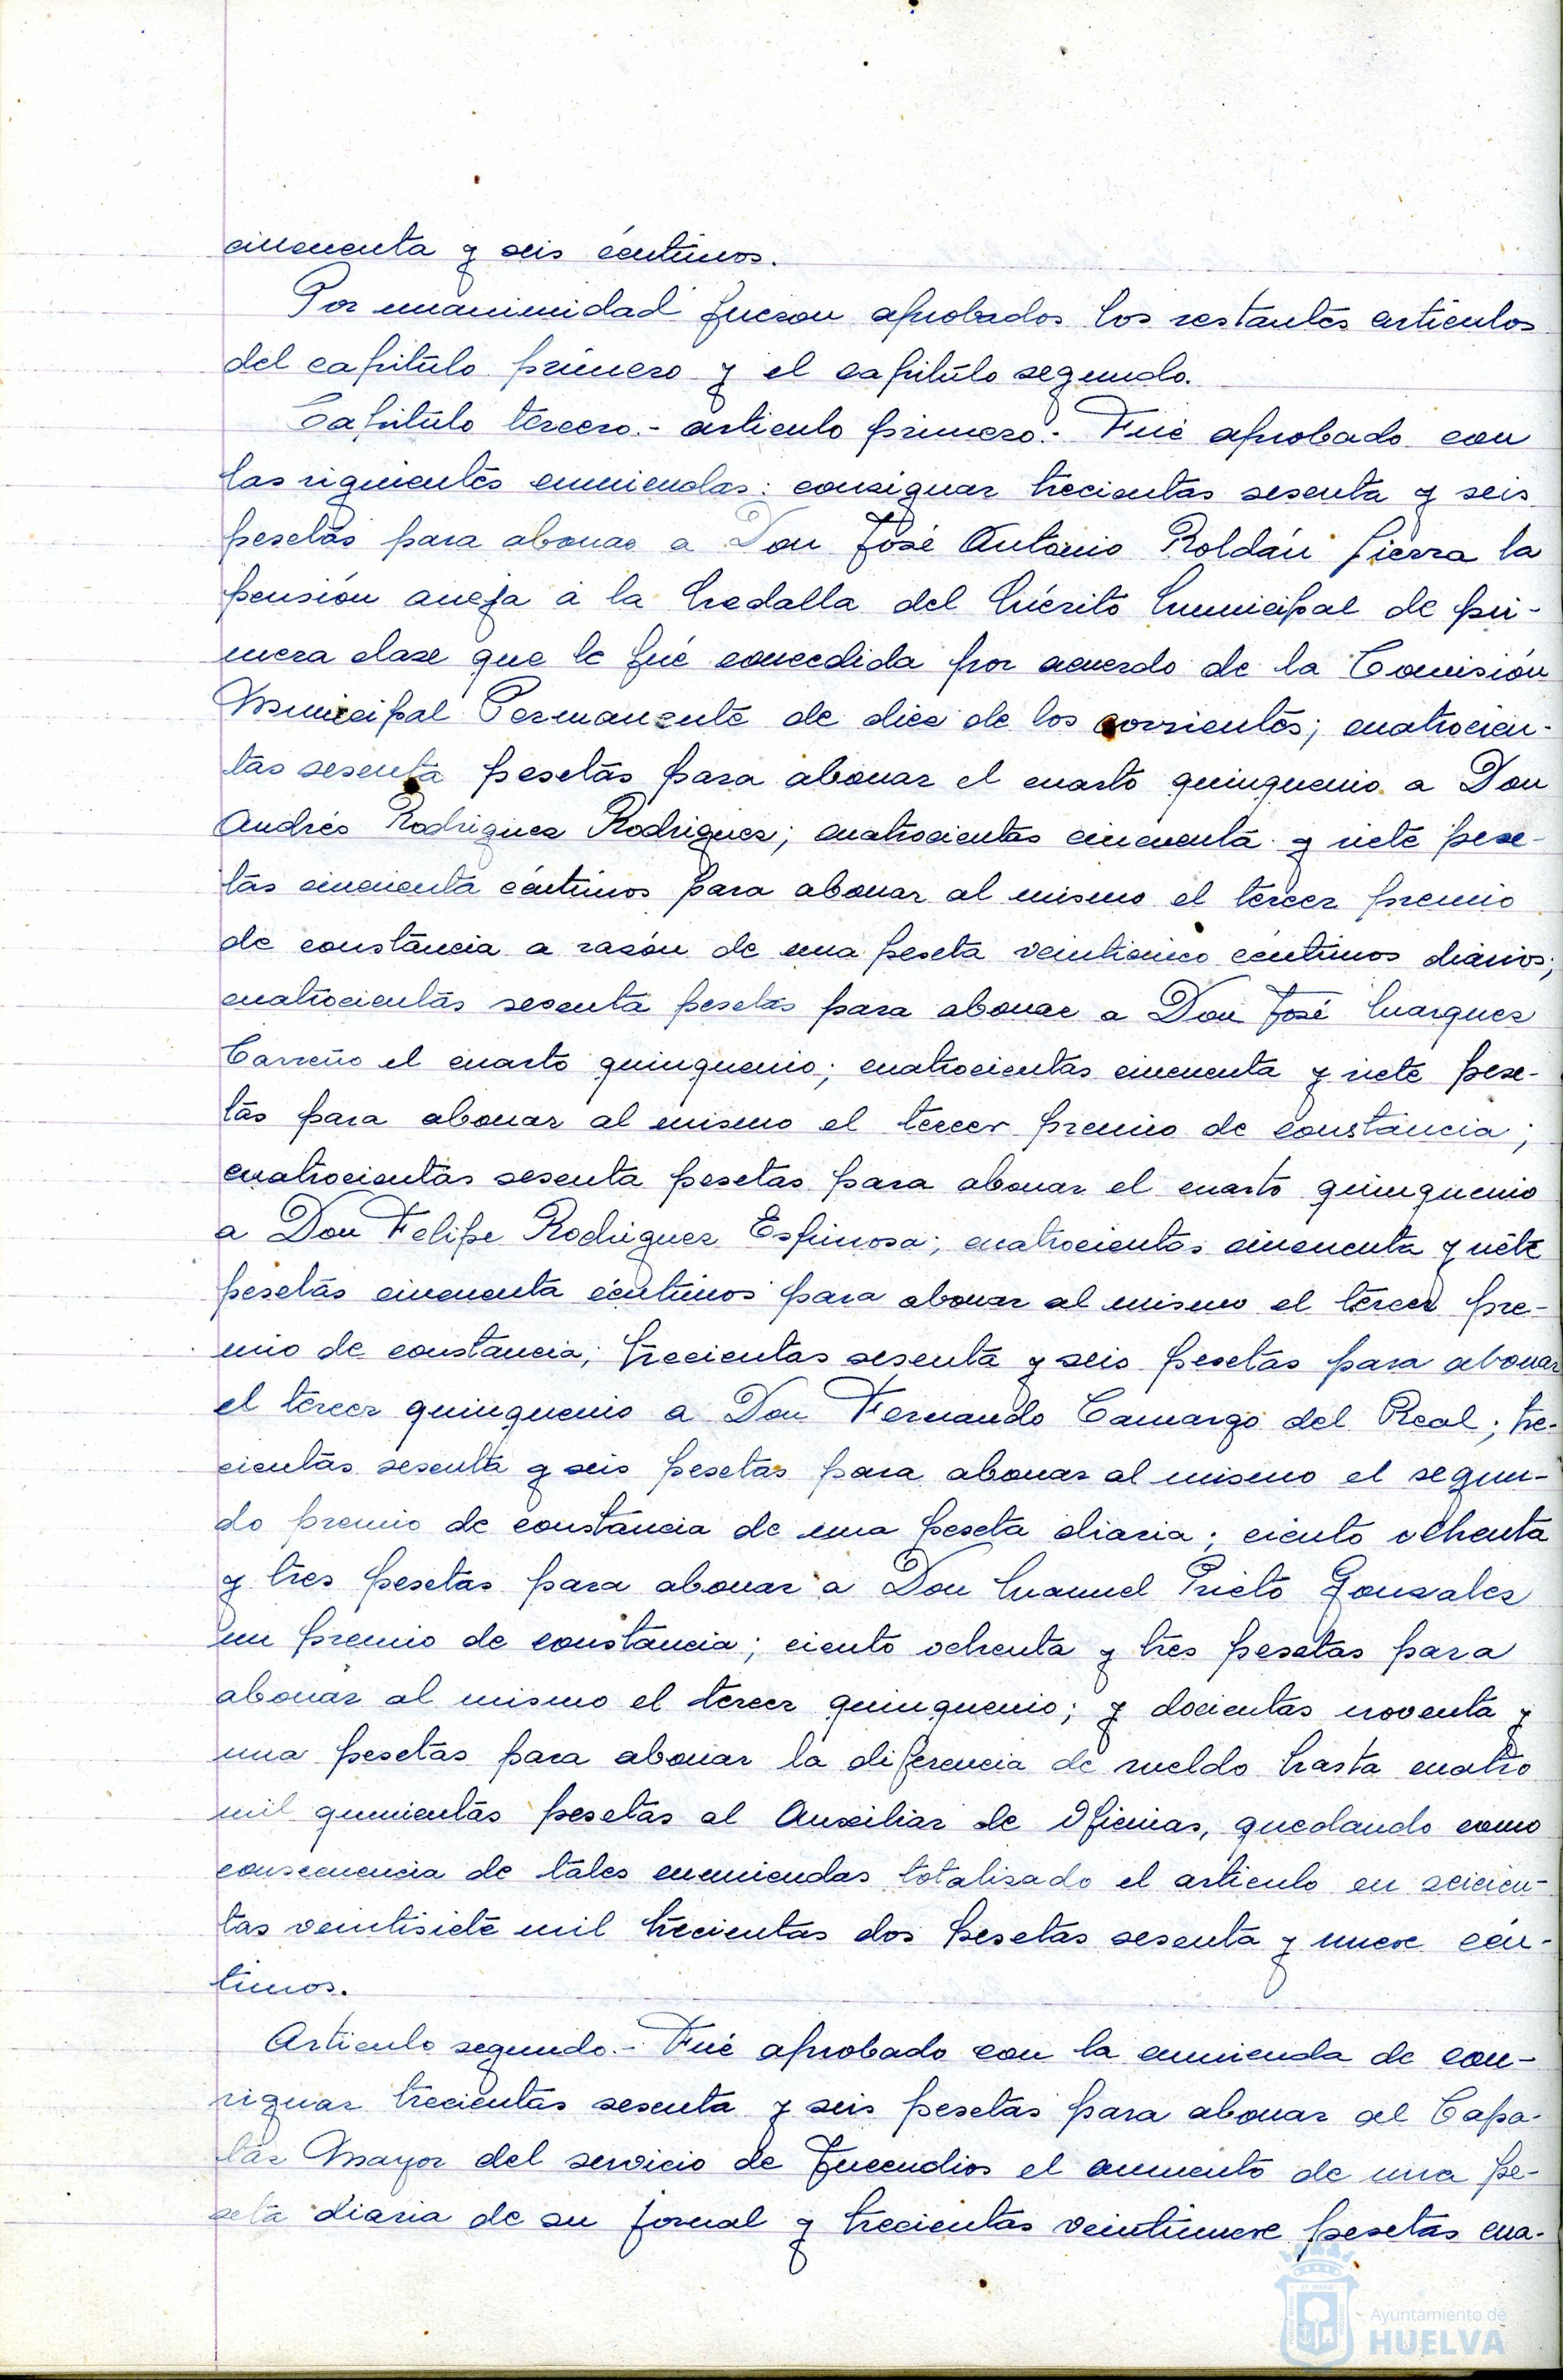 cincuenta y seis céntimos.
Por unanimidad fueron aprobados los restantes artículos
del capítulo primero y el capítulo segundo.
Capítulo tercero.- artículo primero.- Fué aprobado con
las siguientes enmiendas: consignar trecientas sesenta y seis
pesetas para abonar a Don José Antonio Roldán Sierra la
pensión aneja a la Medalla del Mérito Municipal de pri-
mera clase que le fué concedida por acuerdo de la Comisión
Municipal Permanente de diez de los corrientes; cuatrocien-
tas sesenta pesetas para abonar el cuarto quinquenio a Don
Andrés Rodriguez Rodriguez; cuatrocientas cincuenta y siete pese-
tas cincuenta céntimos para abonar al mismo el tercer premio
de constancia a razón de una peseta veinticinco céntimos diarios;
cuatrocientas sesenta pesetas para abonar a Don José Marquez
Carreño el cuarto quinquenio; cuatrocientas cincuenta y siete pese-
tas para abonar al mismo el tercer premio de constancia;
cuatrocientas sesenta pesetas para abonar el cuarto quinquenio
a Don Felipe Rodriguez Espinosa; cuatrocientas cincuenta y siete
pesetas cincuenta céntimos para abonar al mismo el tercer pre-
mio de constancia; trecientas sesenta y seis pesetas para abonar
el tercer quinquenio a Don Fernando Camargo del Real; tre-
cientas sesenta y seis pesetas para abonar al mismo el segun-
do premio de constancia de una peseta diaria; ciento ochenta
y tres pesetas para abonar a Don Manuel Prieto Gonzalez
un premio de constancia; ciento ochenta y tres pesetas para
abonar al mismo el tercer quinquenio; y docientas noventa y
una pesetas para abonar la diferencia de sueldo hasta cuatro
mil quinientas pesetas al Auxiliar de Oficinas, quedando como
consecuencia de tales enmiendas totalizado el artículo en seicien-
tas veintisiete mil trecientas dos pesetas sesenta y nueve cén-
timos.
Artículo segundo.- Fué aprobado con la enmienda de con-
signar trecientas sesenta y seis pesetas para abonar al Capa-
táz Mayor del servicio de Incendios el aumento de una pe-
seta diaria de su jornal y trecientas veintinueve pesetas cua-
Ayuntamiento de
HUELVA